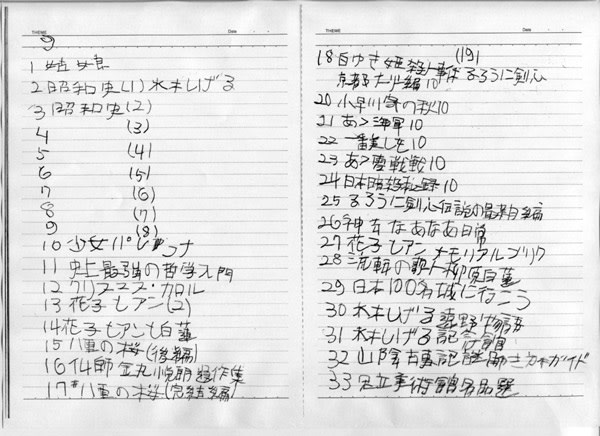 THEME Date
9
1 蛙娘
2 昭和史(1) 水木しげる
3 昭和史(2)
4 (3)
5 (4)
6 (5)
7 (6)
8 (7)
9 (8)
10 少女パレアナ
11 史上最強の哲学入門
12 クリスマス・カロル
13 花子とアン(2)
14 花子とアンと白蓮
15 八重の桜(後編)
16 仏師 金丸悦朗 造作集
17 八重の桜(完結編)
THEME Date
18 白ゆき姫殺人事件 (19) るろうに剣心
京都大火編 10
20 小早川家の秋 10
21 あゝ海軍 10
22 一番美しを 10
23 あゝ零戦 10
24 日本 10
25 るろうに剣心伝説の最期編
26 神去なあなあ日常
27 花子とアンメモリアルブック
28 流転の歌人柳原白蓮
29 日本100名城に行こう
30 水木しげる 遠野物語
31 水木しげる記念館
32 山陰古事記謎解きガイド
33 足立美術館名品選